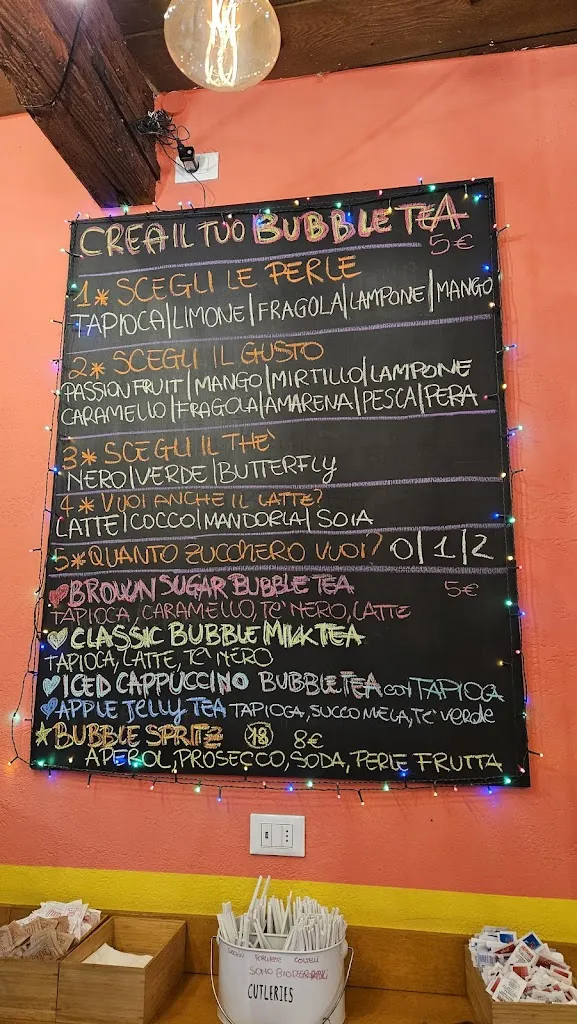 CREA IL TUO BUBBLE TEA
5€
1* SCEGLI LE PERLE
TAPIOCA|LIMONE|FRAGOLA|LAMPONE|MANGO
2* SCEGLI IL GUSTO
PASSION FRUIT|MANGO|MIRTILLO|LAMPONE
CARAMELLO|FRAGOLA|AMARENA|PESCA|PERA
3* SCEGLI IL THE'
NERO|VERDE|BUTTERFLY
4* VUOI ANCHE IL LATTE?
LATTE|COCCO|MANDORLA|SOIA
5* QUANTO ZUCCHERO VUOI? 0|1|2
BROWN SUGAR BUBBLE TEA 5€
TAPIOCA, CARAMELLO, TE' NERO, LATTE
CLASSIC BUBBLE MILK TEA
TAPIOCA, LATTE, TE' NERO
ICED CAPPUCCINO BUBBLE TEA con TAPIOCA
APPLE JELLY TEA TAPIOCA, SUCCO MELA, TE' VERDE
BUBBLE SPRITZ 18 8€
APEROL, PROSECCO, SODA, PERLE FRUTTA
COLTELLI
SONO BIODEGRADABILI
CUTLERIES